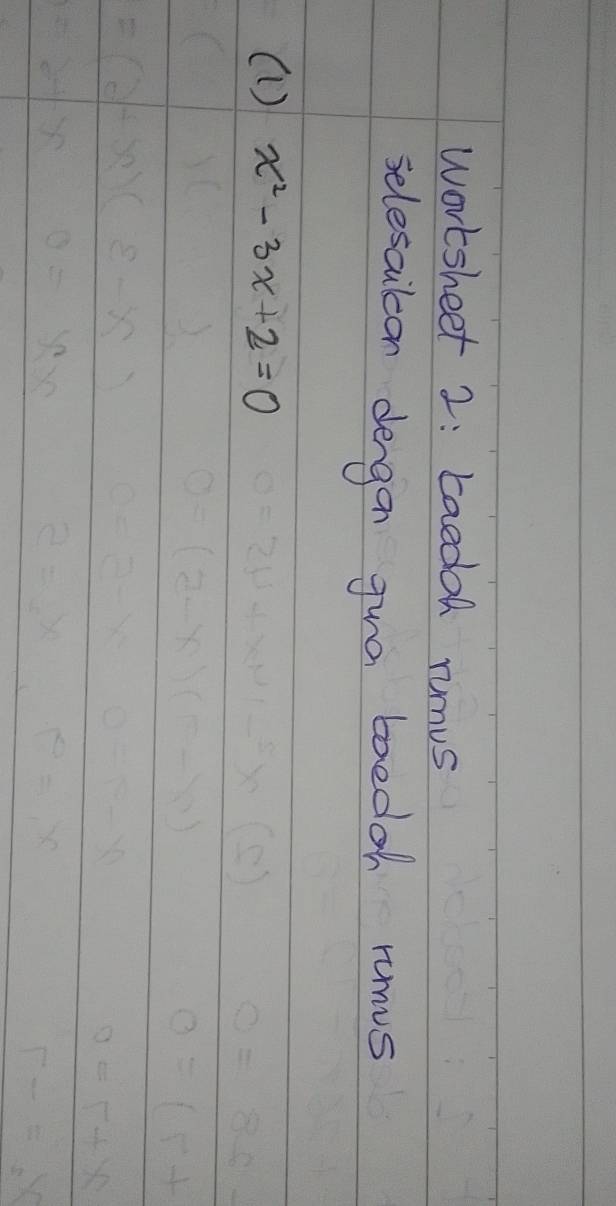 Worksheet 2: kaedah rumus
selesaikan dengan guna kaedah rumus
(1) x² - 3x + 2 = 0